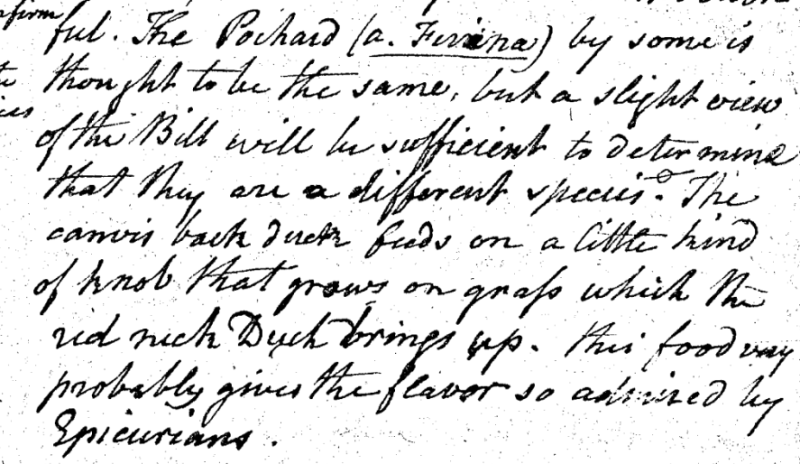 ful. The Pochard (a. Ferina) by some is
thought to be the same, but a slight view
of the Bill will be sufficient to determine
that they are a different species. The
canvis back duck feeds on a little kind
of knob that grows on grass which the
red neck Duck brings up. this food very
probably gives the flavor so admired by
Epicurians.